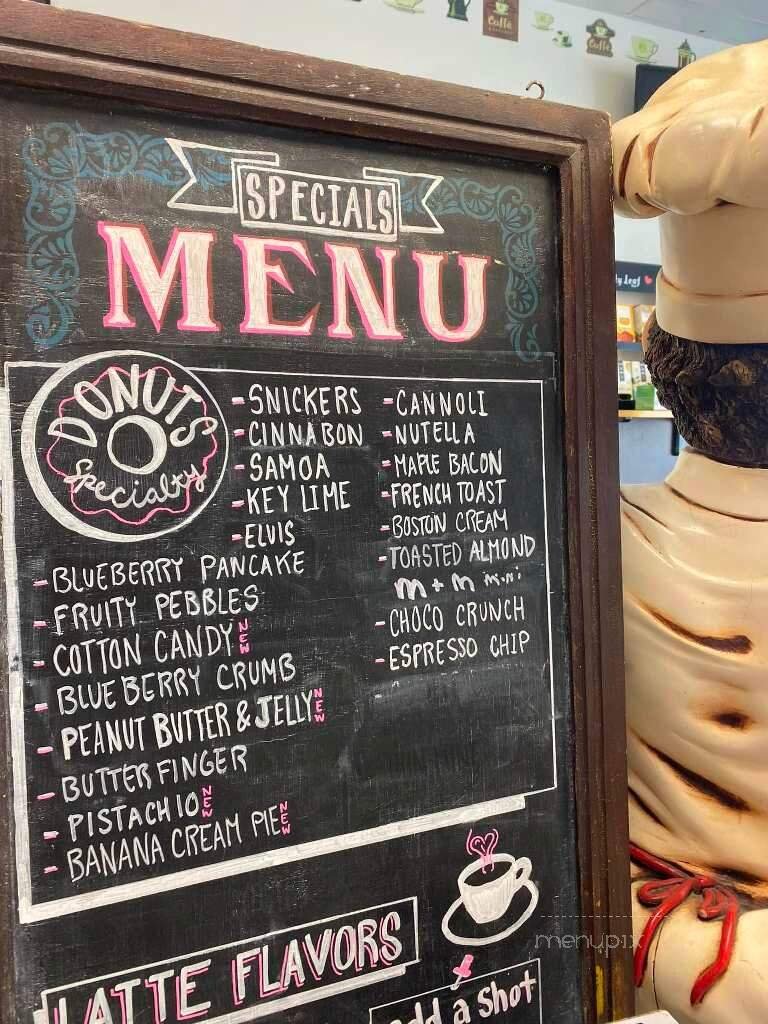 Caffè
Caffè
SPECIALS
MENU
DONUTS
Specialty
-SNICKERS
-CINNABON
-SAMOA
-KEY LIME
-ELVIS
-BLUEBERRY PANCAKE
-FRUITY PEBBLES
-COTTON CANDY NEW
-BLUEBERRY CRUMB
-PEANUT BUTTER & JELLY NEW
-BUTTERFINGER
-PISTACHIO NEW
-BANANA CREAM PIE NEW
-CANNOLI
-NUTELLA
-MAPLE BACON
-FRENCH TOAST
-BOSTON CREAM
-TOASTED ALMOND
m+m mini
-CHOCO CRUNCH
-ESPRESSO CHIP
LATTE FLAVORS
add a Shot
Leaf
menupix